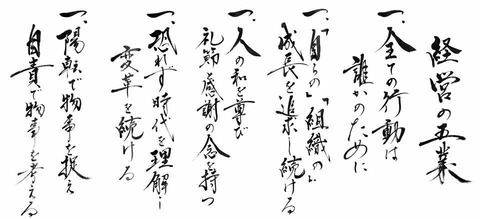 経営の五業
一、全ての行動は
誰かのために
一、「自らの」「組織の」
成長を追求し続ける
一、人の和を尊び
礼節と感謝の念を持つ
一、恐れず時代を理解し
変革を続ける
一、陽転で物事を捉え
自責で物事を考える